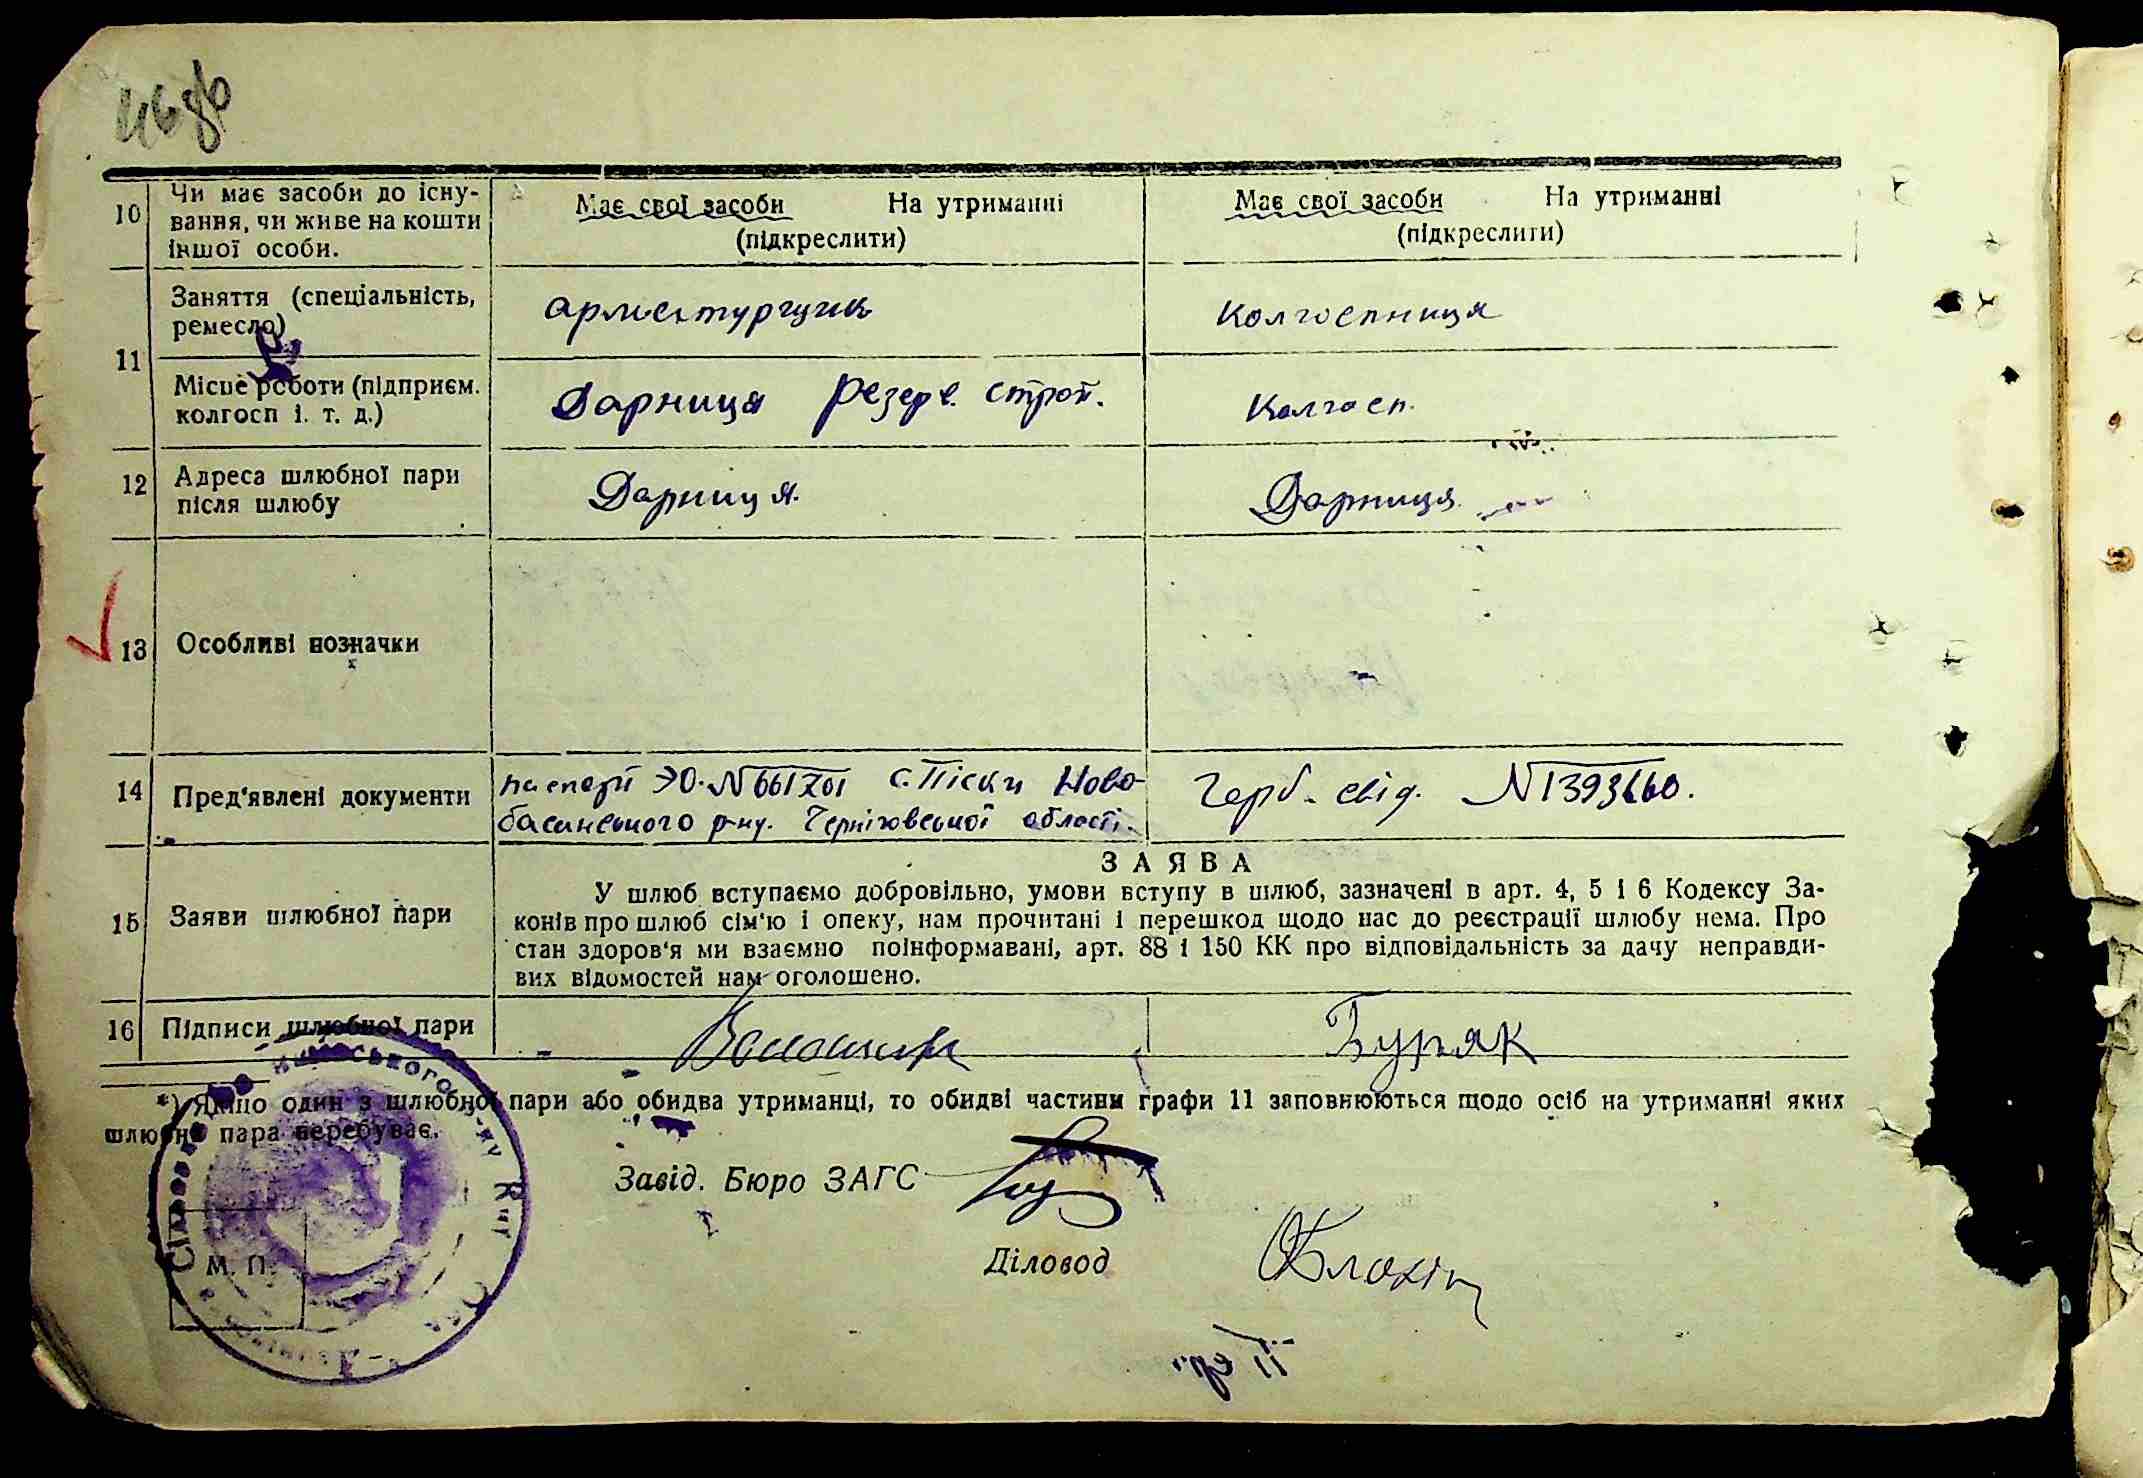 46 зв
10 Чи має засоби до існу-
вання, чи живе на кошти
іншої особи.
Має свої засоби На утриманні
(підкреслити)
Має свої засоби На утриманні
(підкреслити)
11 Заняття (спеціальність,
ремесло)
арматурщик
Колгоспниця
Місце роботи (підприєм.
колгосп і. т. д.)
Дарниця резерв. строй.
Колгосп.
12 Адреса шлюбної пари
після шлюбу
Дарниця.
Дарниця.
13 Особливі позначки
14 Пред'явлені документи
паспорт ЭО. №661701 с. Піски Ново-
басанського р-ну. Чернігівської області.
Герб. свід. №1393660.
15 Заяви шлюбної пари
ЗАЯВА
У шлюб вступаємо добровільно, умови вступу в шлюб, зазначені в арт. 4, 5 і 6 Кодексу За-
конів про шлюб сім'ю і опеку, нам прочитані і перешкод щодо нас до реєстрації шлюбу нема. Про
стан здоров'я ми взаємно поінформавані, арт. 88 і 150 КК про відповідальність за дачу неправди-
вих відомостей нам оголошено.
16 Підписи шлюбної пари
Буряк
*) Якщо один з шлюбної пари або обидва утриманці, то обидві частини графи 11 заповнюються щодо осіб на утриманні яких
шлюбна пара перебуває.
Завід. Бюро ЗАГС
Діловод
М. П.